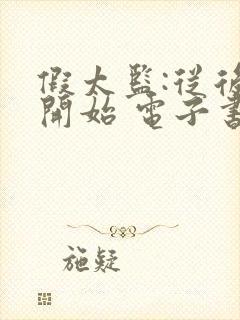 假太監:從後
開始 電子書
施疑